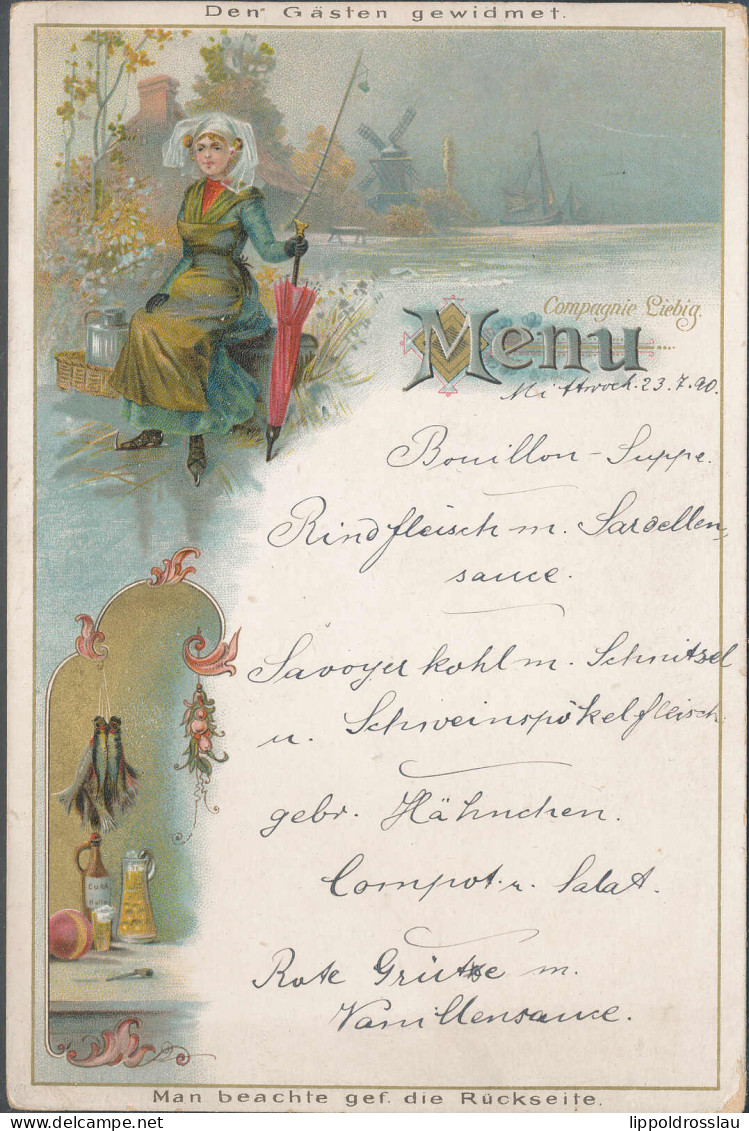 Den Gästen gewidmet.
Compagnie Liebig.
Menu
Mittwoch. 23.7.90.
Bouillon-Suppe.
Rindfleisch m. Sardellen,
sauce.
Savoyerkohl m. Schnitzel
u. Schweinspökelfleisch
gebr. Hähnchen.
Compot. u. Salat.
Rote Grütze m.
Vanillensauce.
Man beachte gef. die Rückseite.
lippoldrosslau